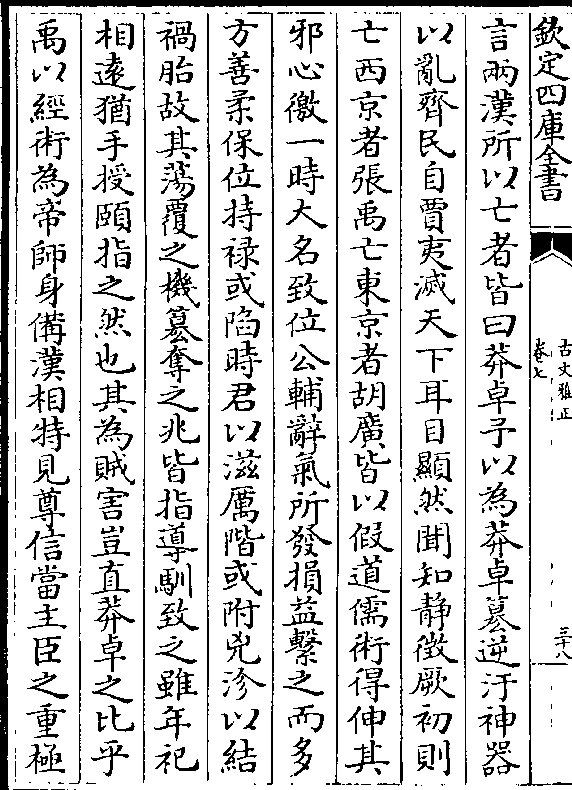 欽定四庫全書
古文雅正
卷七
三十八
言兩漢所以亡者皆曰莽卓予以為莽卓篡逆汙神器
以亂齊民自賈夷滅天下耳目顯然聞知静徴厥初則
亡西京者張禹亡東京者胡廣皆以假道儒術得伸其
邪心徼一時大名致位公輔辭氣所發損益繫之而多
方善柔保位持禄或陷時君以滋厲階或附兇沴以結
禍胎故其蕩覆之機篡奪之兆皆指導馴致之雖年祀
相逺猶手授頤指之然也其為賊害豈直莽卓之比乎
禹以經術為帝師身備漢相特見尊信當主臣之重極